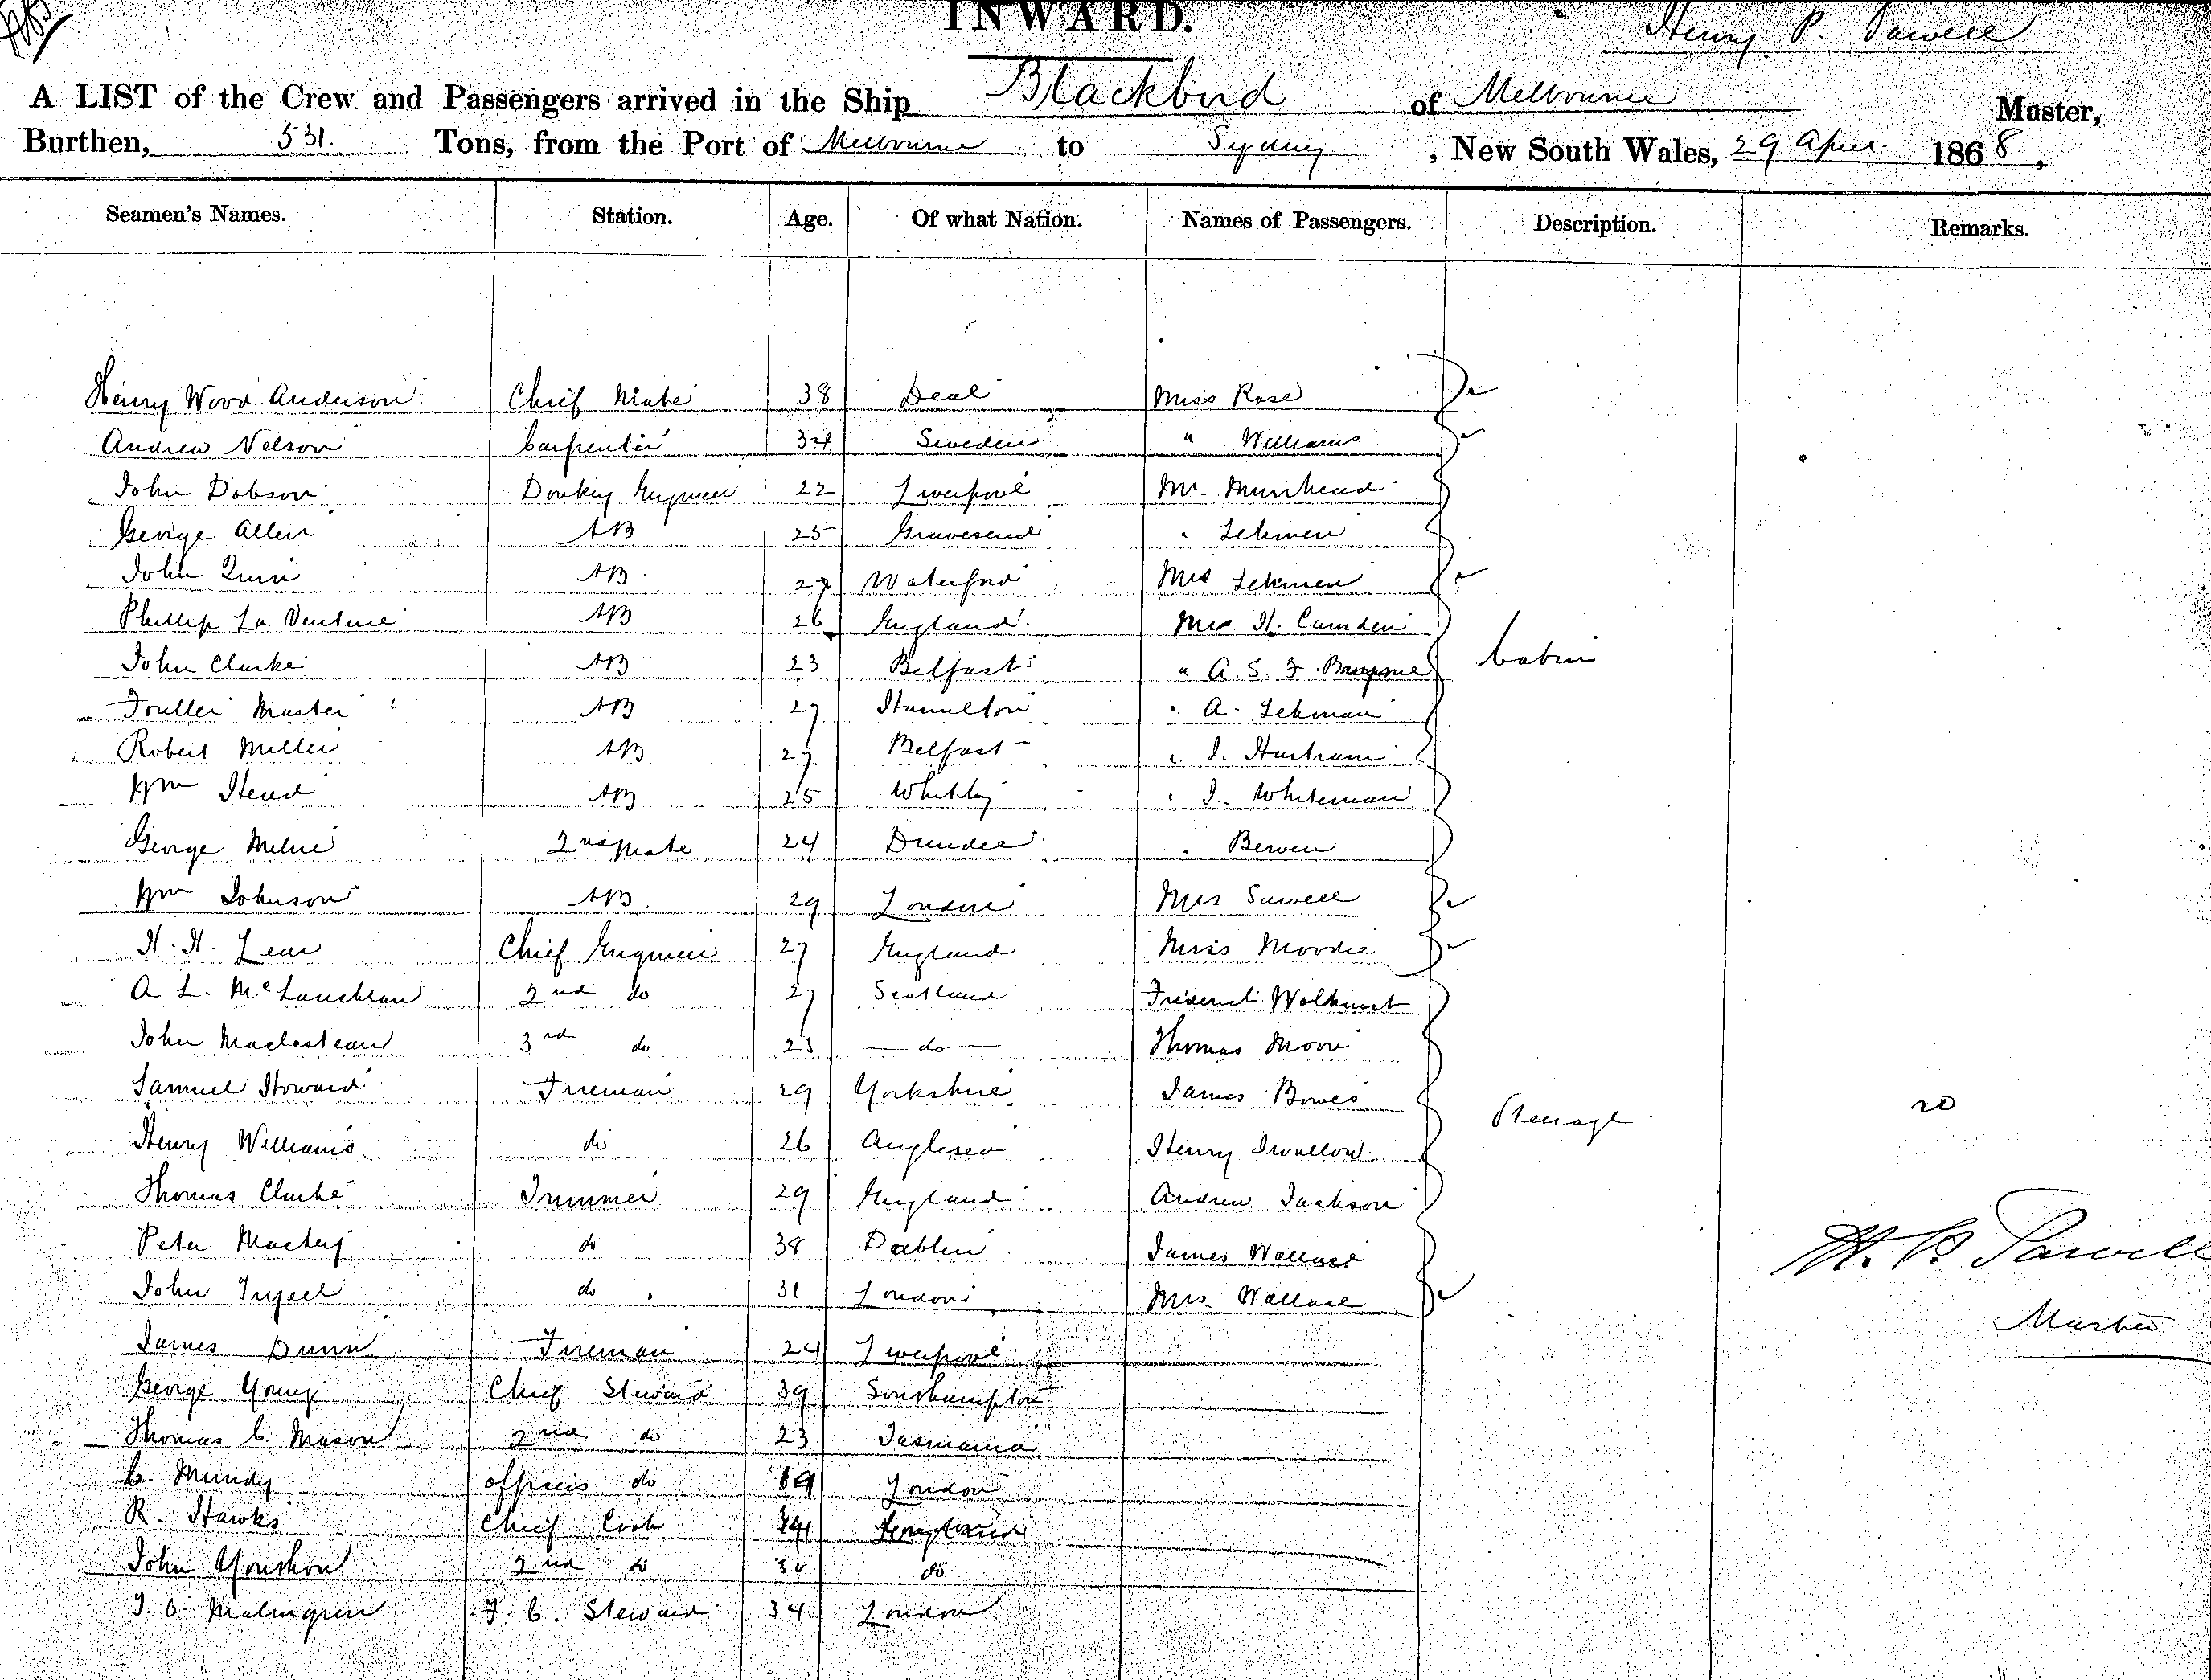 INWARD.
Henry P.
A LIST of the Crew and Passengers arrived in the Ship Blackbird of Melbourne Master,
Burthen, 531. Tons, from the Port of Melbourne to Sydney, New South Wales, 29 April 1868,
Seamen's Names. Station. Age. Of what Nation. Names of Passengers. Description. Remarks.
Henry Wood Anderson Chief Mate 38 Deal Miss Rose
Andrew Nelson Carpenter 34 Sweden " Williams
John Dobson Donkey Engineer 22 Liverpool Mr. Muirhead
George Allen AB 25 Gravesend " Lehmen
John Quin AB 27 Waterford Mrs Lehmen
Phillip La Venture AB 26 England. Mr. H. Camden
John Clarke AB 23 Belfast " A. S. F.
Master AB 27 Hamilton " A. Lehman
Robert Miller AB 27 Belfast " J.
Wm Head AB 25 Whitby " J. Whiteman
George Milne 2nd Mate 24 Dundee "
Wm Johnson AB 29 London Mrs Sawell
H. H. Lear Chief Engineer 27 England Miss Moodie
A L. McLauchlan 2nd do 27 Scotland
John 3rd do 23 do Thomas Moore
Samuel Howard Fireman 29 Yorkshire James Bowes
Henry Williams do 26 Anglesea Henry Swallow
Thomas Clarke Trimmer 29 England Andrew Jackson
Peter do 38 Dublin James Wallace
John do 31 London Mrs. Wallace
James Dunn Fireman 24 Liverpool
George Young Chief Steward 39 Southampton
Thomas C. Mason 2nd do 23 Tasmania
C. Mundy officers do 19 London
R. Hawks Chief Cook England
John 2nd do 30 do
Malmgren F. C. Steward 34 London
Cabin
Steerage
20
H. P.
Master